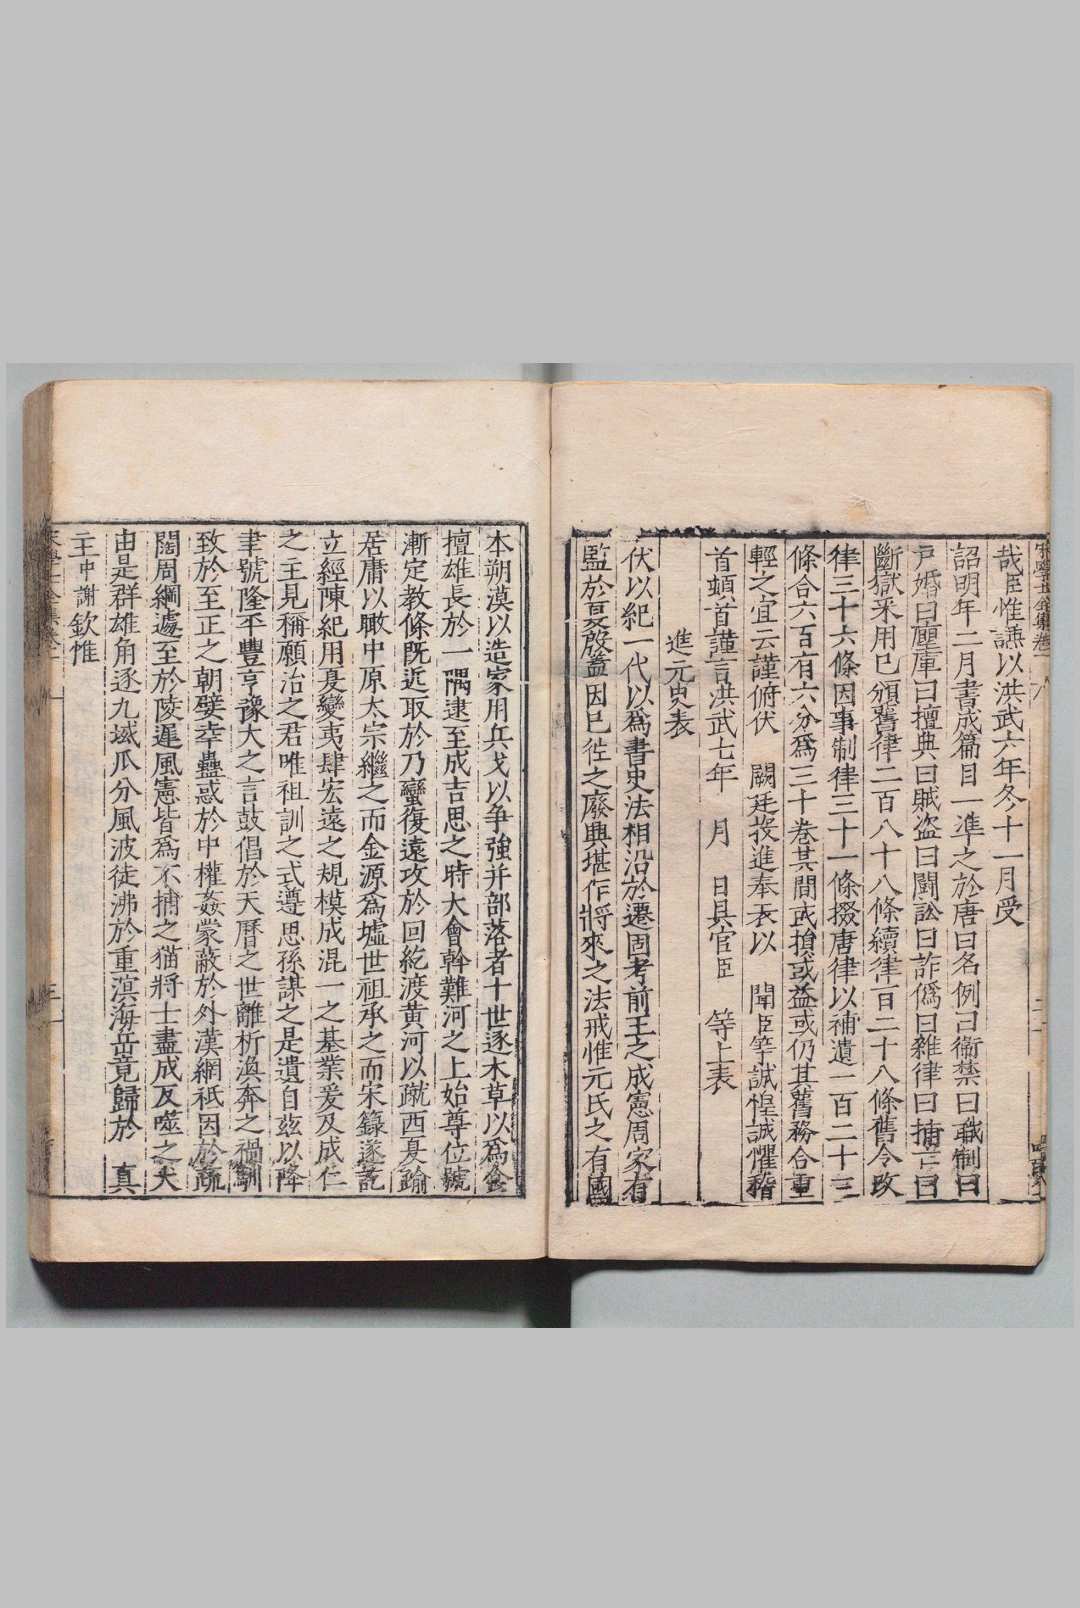 哉臣惟謙以洪武六年冬十一月受
詔明年二月書成篇目一準之於唐曰名例曰衛禁曰職制曰
戶婚曰廐庫曰擅興曰賊盗曰鬪訟曰詐僞曰雜律曰捕亡曰
斷獄采用已頒舊律二百八十八條續律百二十八條舊令改
律三十六條因事制律三十一條掇唐律以補遺一百二十三
條合六百有六分爲三十卷其間或損或益或仍其舊務合重
輕之宜云謹俯伏 闕廷投進奉表以 聞臣等誠惶誠懼稽
首頓首謹言洪武七年 月 日具官臣 等上表
進元史表
伏以紀一代以爲書史法相沿於遷固考前王之成憲周家有
監於夏殷蓋因已徃之廢興堪作將來之法戒惟元氏之有國
本朔漠以造家用兵戈以争強并部落者十世逐水草以爲食
擅雄長於一隅逮至成吉思之時大會幹難河之上始尊位號
漸定教條既近取於乃蠻復遠攻於回紇渡黃河以蹴西夏踰
居庸以瞰中原太宗繼之而金源爲墟世祖承之而宋籙遂訖
立經陳紀用夏變夷肆宏遠之規模成混一之基業爰及成仁
之主見稱願治之君唯祖訓之式遵思孫謀之是遺自兹以降
聿號隆平豐亨豫大之言鼓倡於天曆之世離析渙奔之禍馴
致於至正之朝嬖幸蠱惑於中權姦蒙蔽於外漢網衹因於疏
闊周綱遽至於陵遲風憲皆爲不捕之猫將士盡成反噬之犬
由是群雄角逐九域瓜分風波徒沸於重溟海岳竟歸於 真
主中謝欽惟